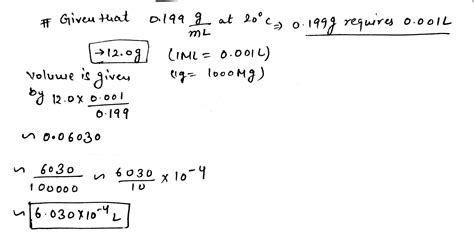 # Given that 0.199 g/mL at 20°C ⇒ 0.199g requires 0.001L
→12.0g (1ML = 0.001L)
(1g = 1000Mg)
Volume is given
by 12.0 x 0.001/0.199
~ 0.06030
~ 6030/100000 ~ 6030/10 x 10^-4
~ 6.030x10^-4 L